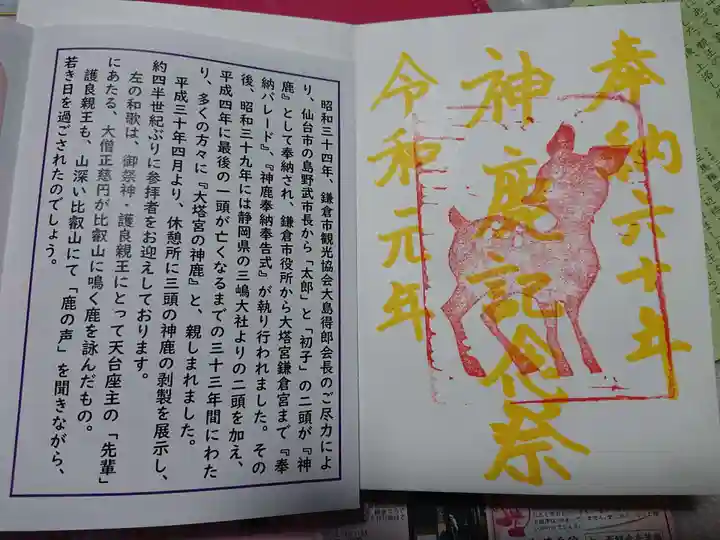 奉納六十年
神鹿記念祭
令和元年
昭和三十四年、鎌倉市観光協会大島得郎会長のご尽力によ
り、仙台市の島野武市長から「太郎」と「初子」の二頭が『神
鹿』として奉納され、鎌倉市役所から大塔宮鎌倉宮まで『奉
納パレード』、『神鹿奉納奉告式』が執り行われました。その
後、昭和三十九年には静岡県の三嶋大社よりの二頭を加え、
平成四年に最後の一頭が亡くなるまでの三十三年間にわた
り、多くの方々に『大塔宮の神鹿』と、親しまれました。
平成三十年四月より、休憩所に三頭の神鹿の剥製を展示し、
約四半世紀ぶりに参拝者をお迎えしております。
左の和歌は、御祭神・護良親王にとって天台座主の「先輩」
にあたる、大僧正慈円が比叡山に鳴く鹿を詠んだもの。
護良親王も、山深い比叡山にて「鹿の声」を聞きながら、
若き日を過ごされたのでしょう。